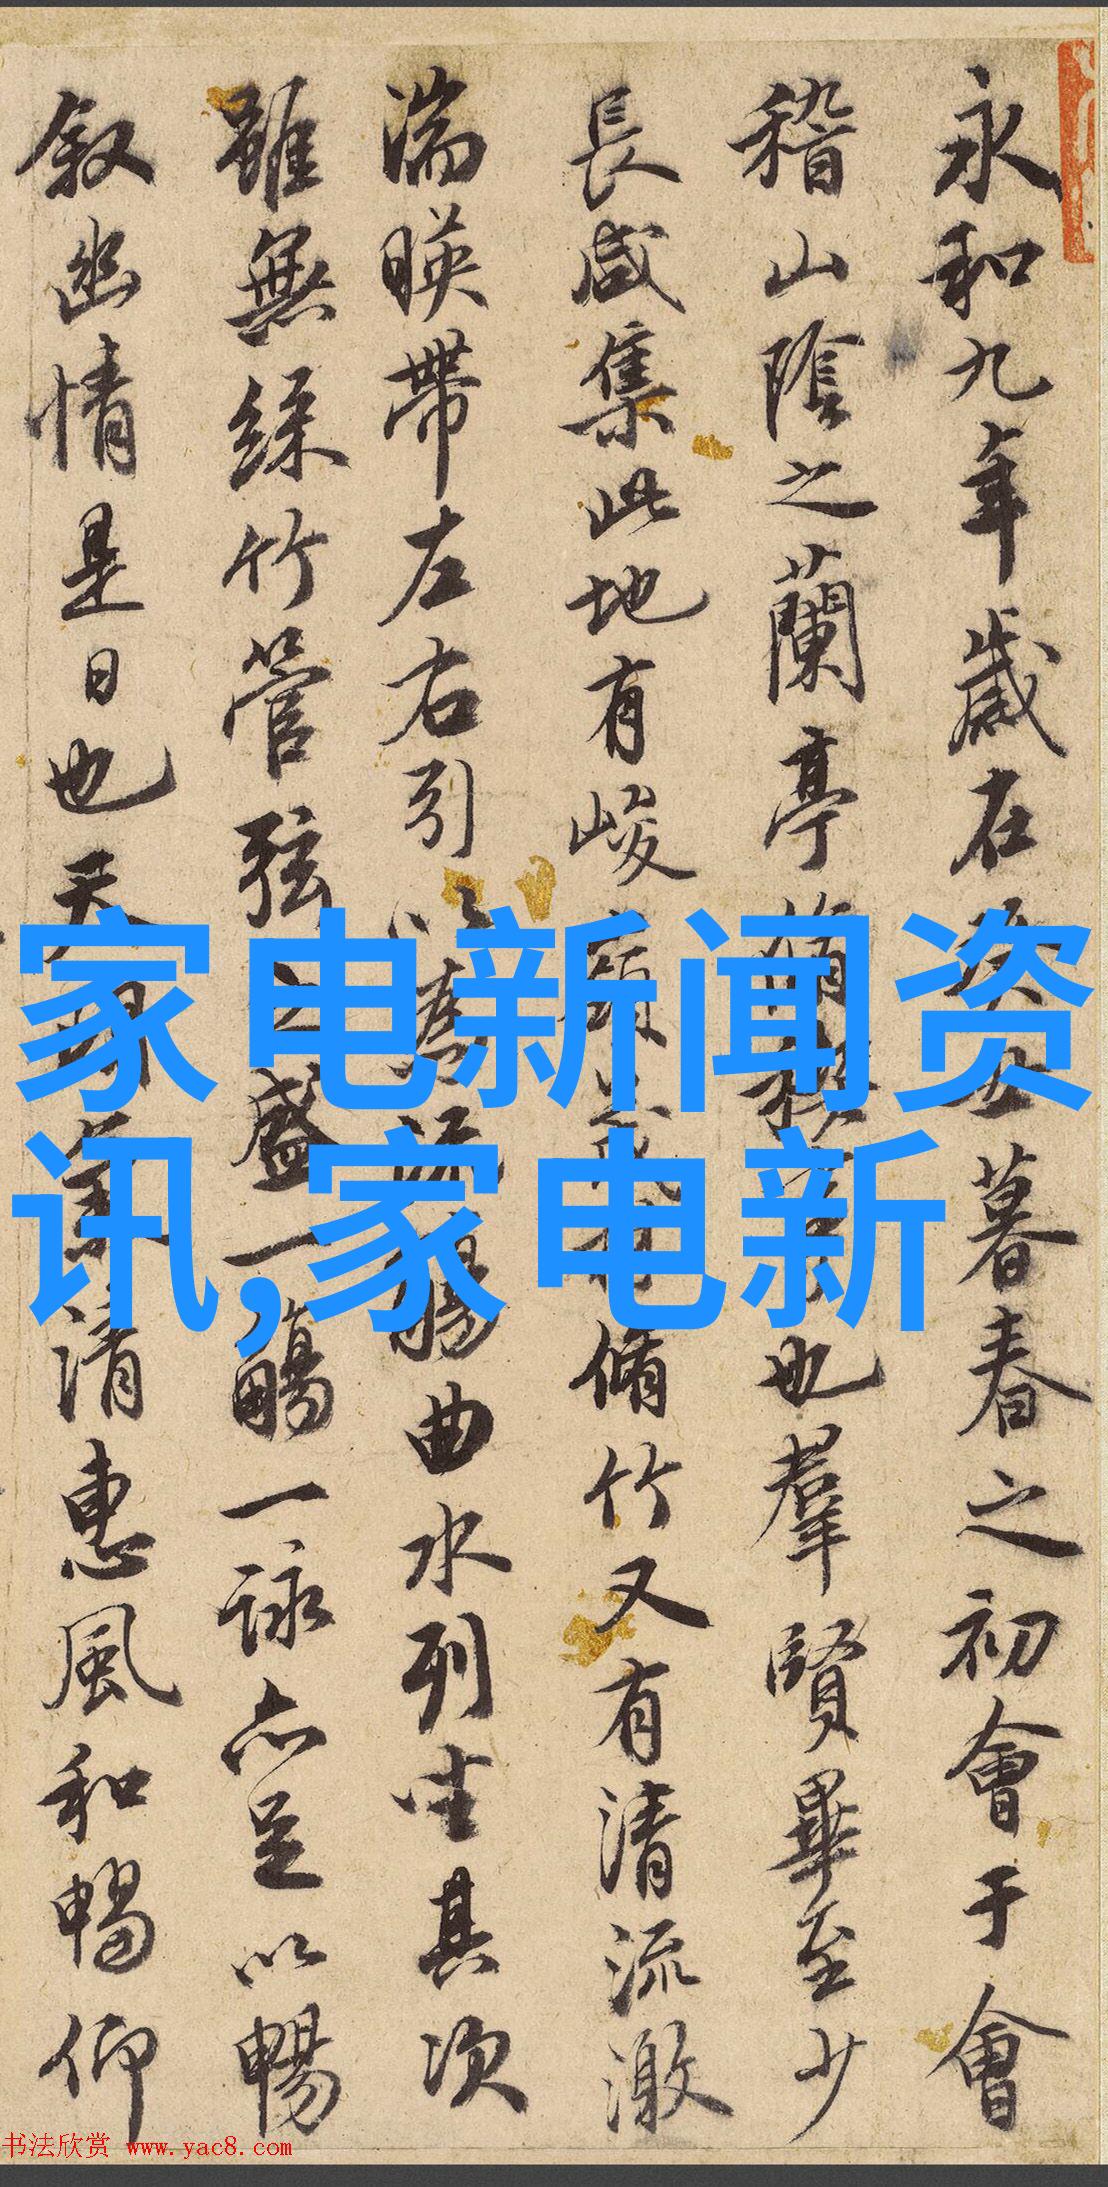 永和九年歲在癸丑暮春之初會于會
稽山陰之蘭亭脩稧事也羣賢畢至少
長咸集此地有峻領茂林脩竹又有清流激
湍暎帶左右引以為流觴曲水列坐其次
雖無絲竹管弦之盛一觴一詠亦足以暢
叙幽情是日也天朗氣清惠風和暢仰
家电新闻资
讯,家电新
书法欣赏 www.yac8.com